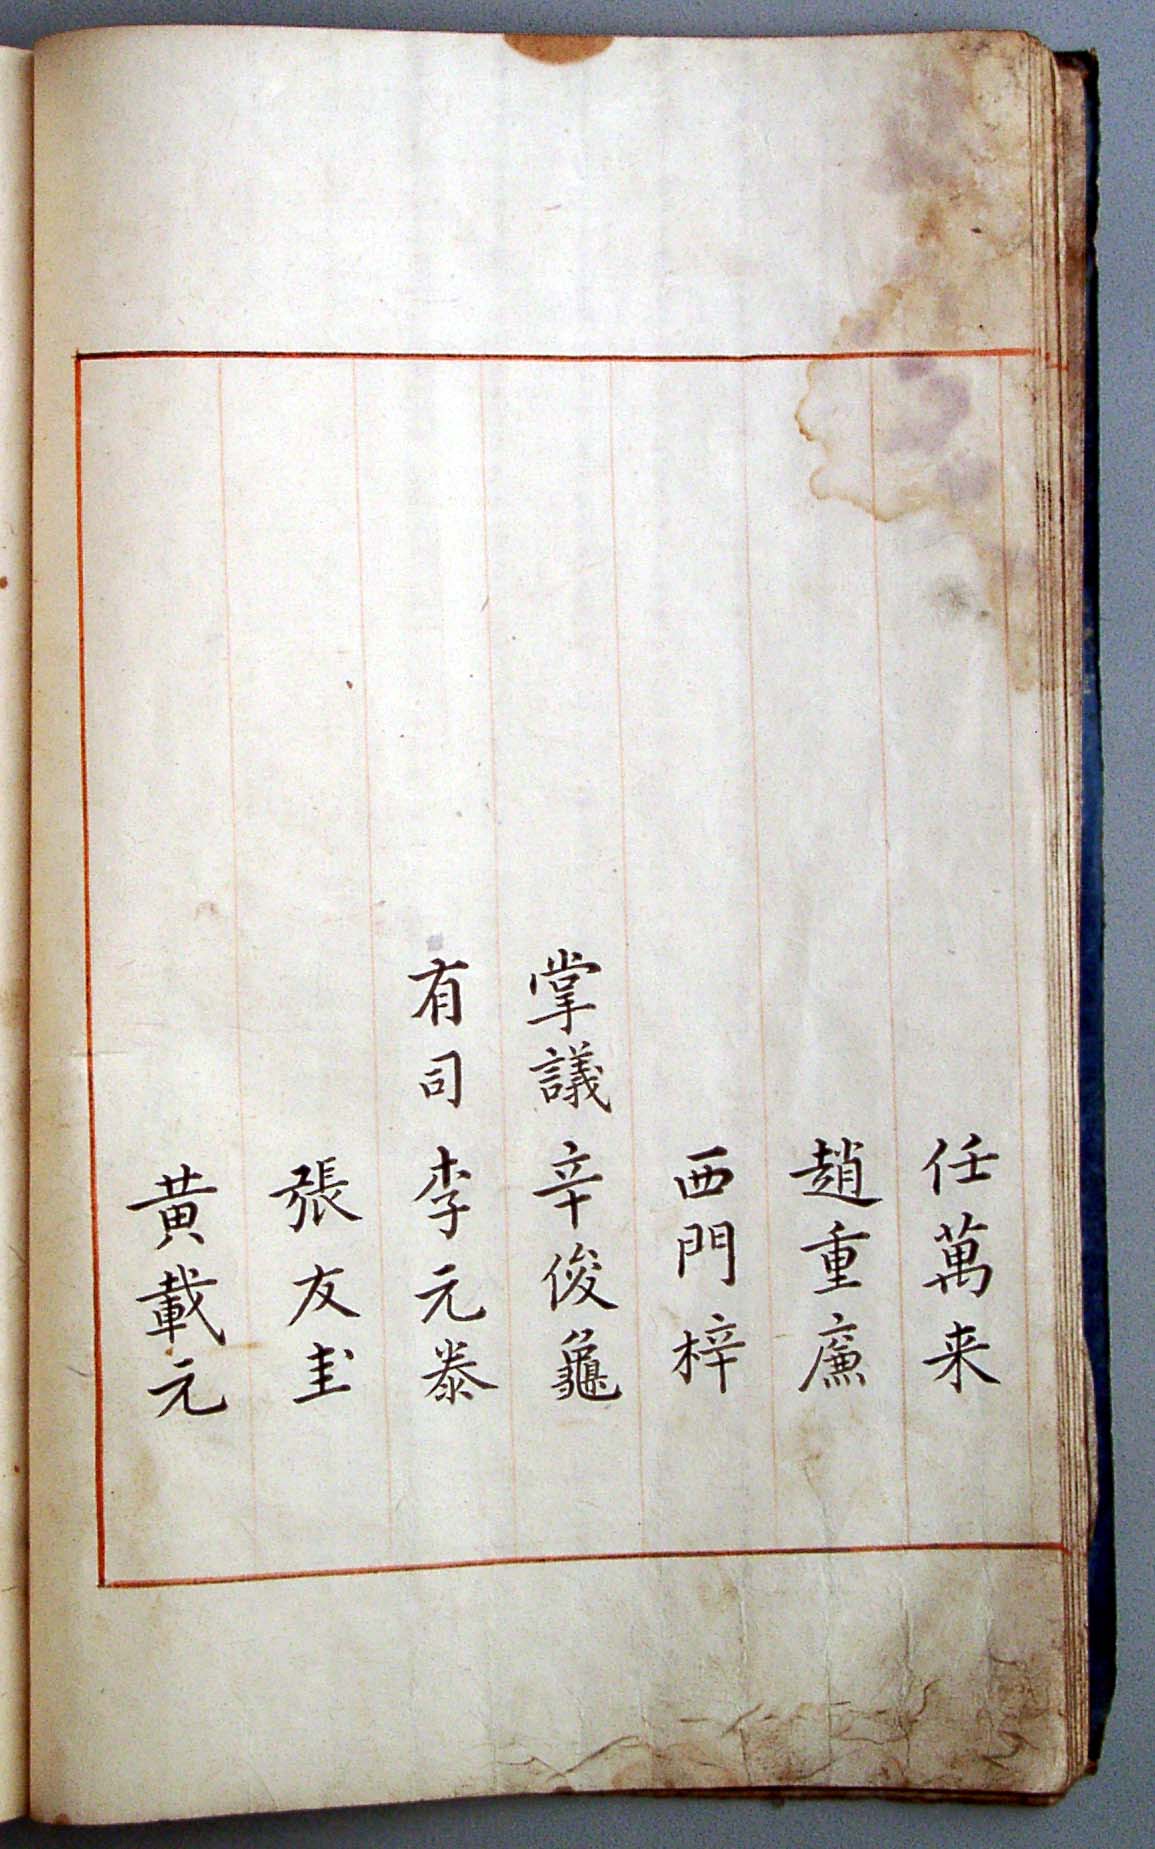 任萬来
趙重廉
西門梓
掌議辛俊龜
有司李元泰
張友圭
黄載元